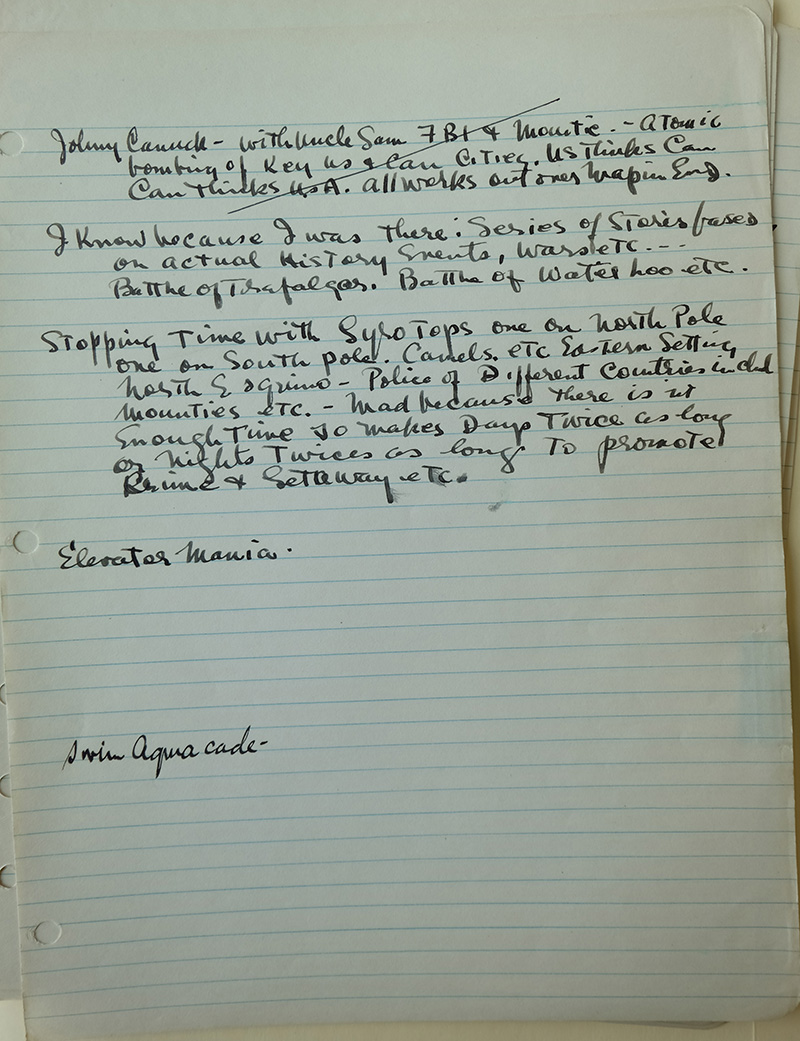 Johnny Canuck - with Uncle Sam FBI & Mountie. - Atomic
bombing of Key US & Can Cities. US Thinks Can
Can Thinks USA. All works out ones Map in End.
I Know because I was there: Series of Stories based
on actual History Events, Wars etc. ---
Battle of Trafalgar. Battle of Waterloo etc.
Stopping Time with Gyro Tops one on North Pole
one on South pole. Camels. etc Eastern Setting
North Esquimo - Police of Different Countries includ
Mounties etc. - Mad because there is nt
Enough Time so makes Days Twice as long
or Nights Twices as long To promote
Crime & Getaway etc.
Elevator Mania.
Swim Aquacade-